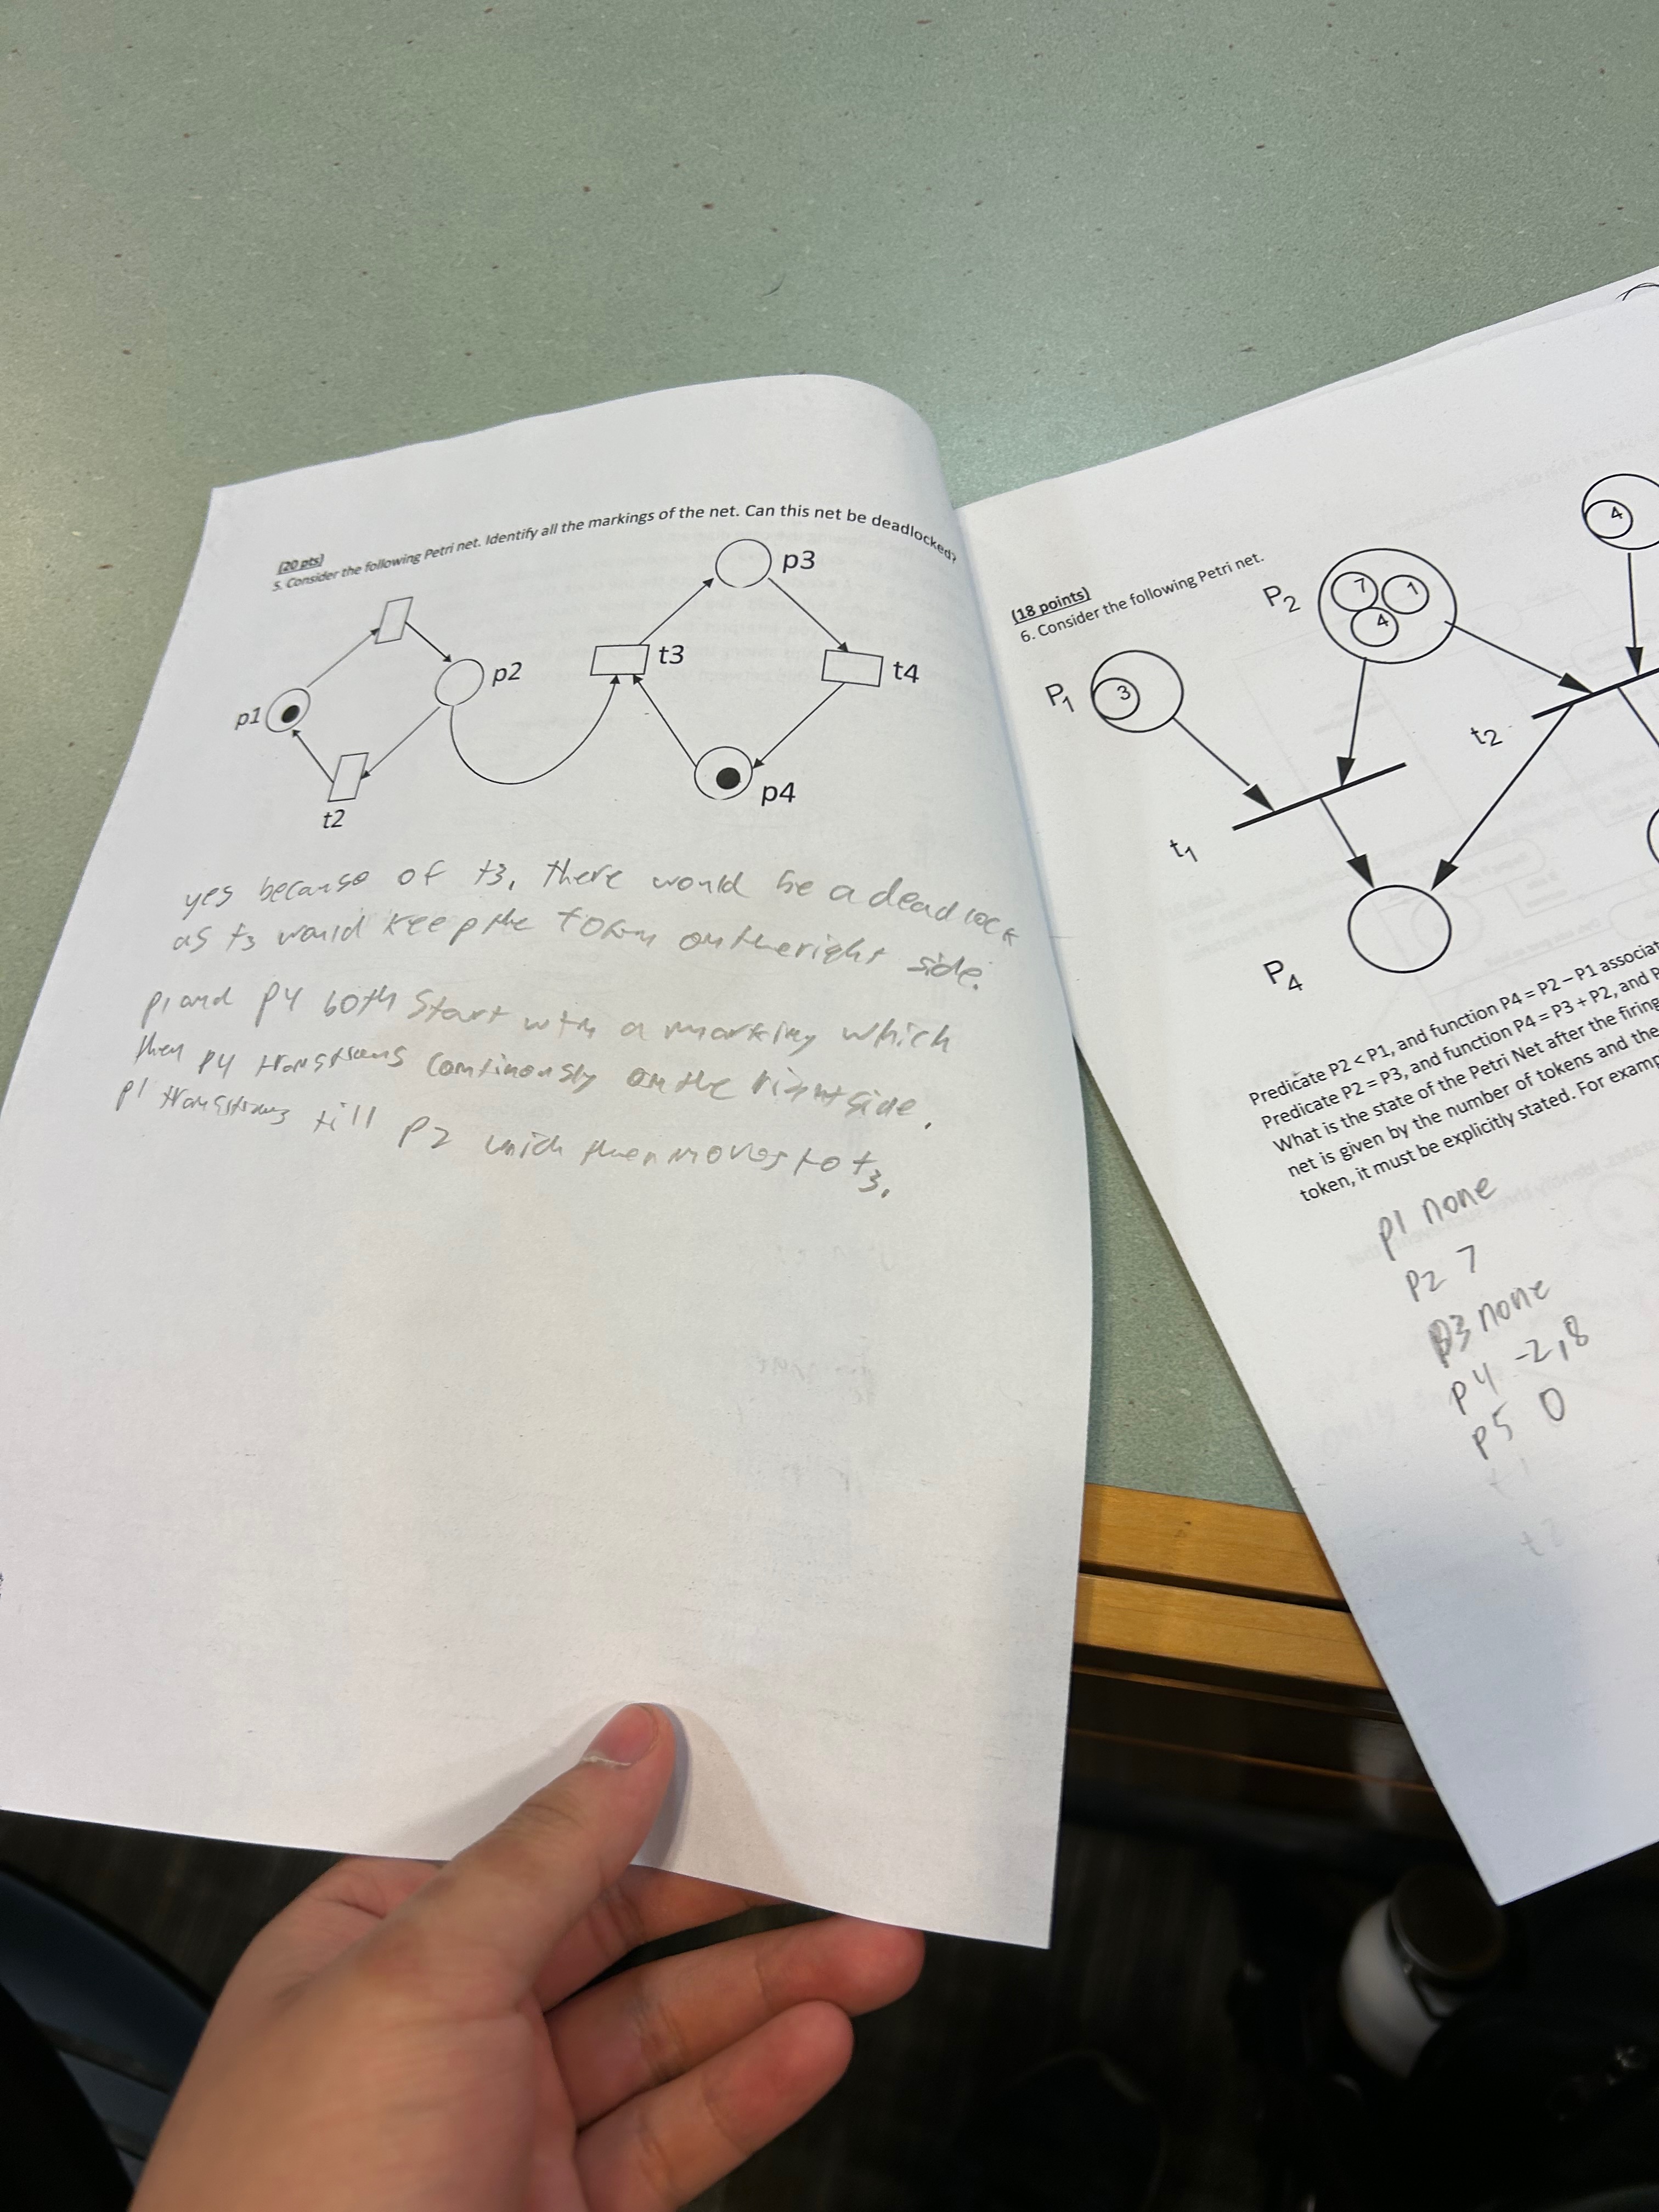 (20 pts)
5. Consider the following Petri net. Identify all the markings of the net. Can this net be deadlocked?
p3
t3
t4
p2
p1
p4
t2
yes because of t3, there would be a deadlock
as t3 would keep the token on the right side.
p1 and p4 both start with a marking which
then p4 continously on the right side.
p1 till p2 which then moves to t3.
(18 points)
6. Consider the following Petri net.
4
P2
7
1
4
P1
3
t2
t1
P4
Predicate P2 < P1, and function P4 = P2 – P1 associat
Predicate P2 = P3, and function P4 = P3 + P2, and P
What is the state of the Petri Net after the firing
net is given by the number of tokens and the
token, it must be explicitly stated. For examp
p1 none
p2 7
p3 none
p4 -2,8
p5 0